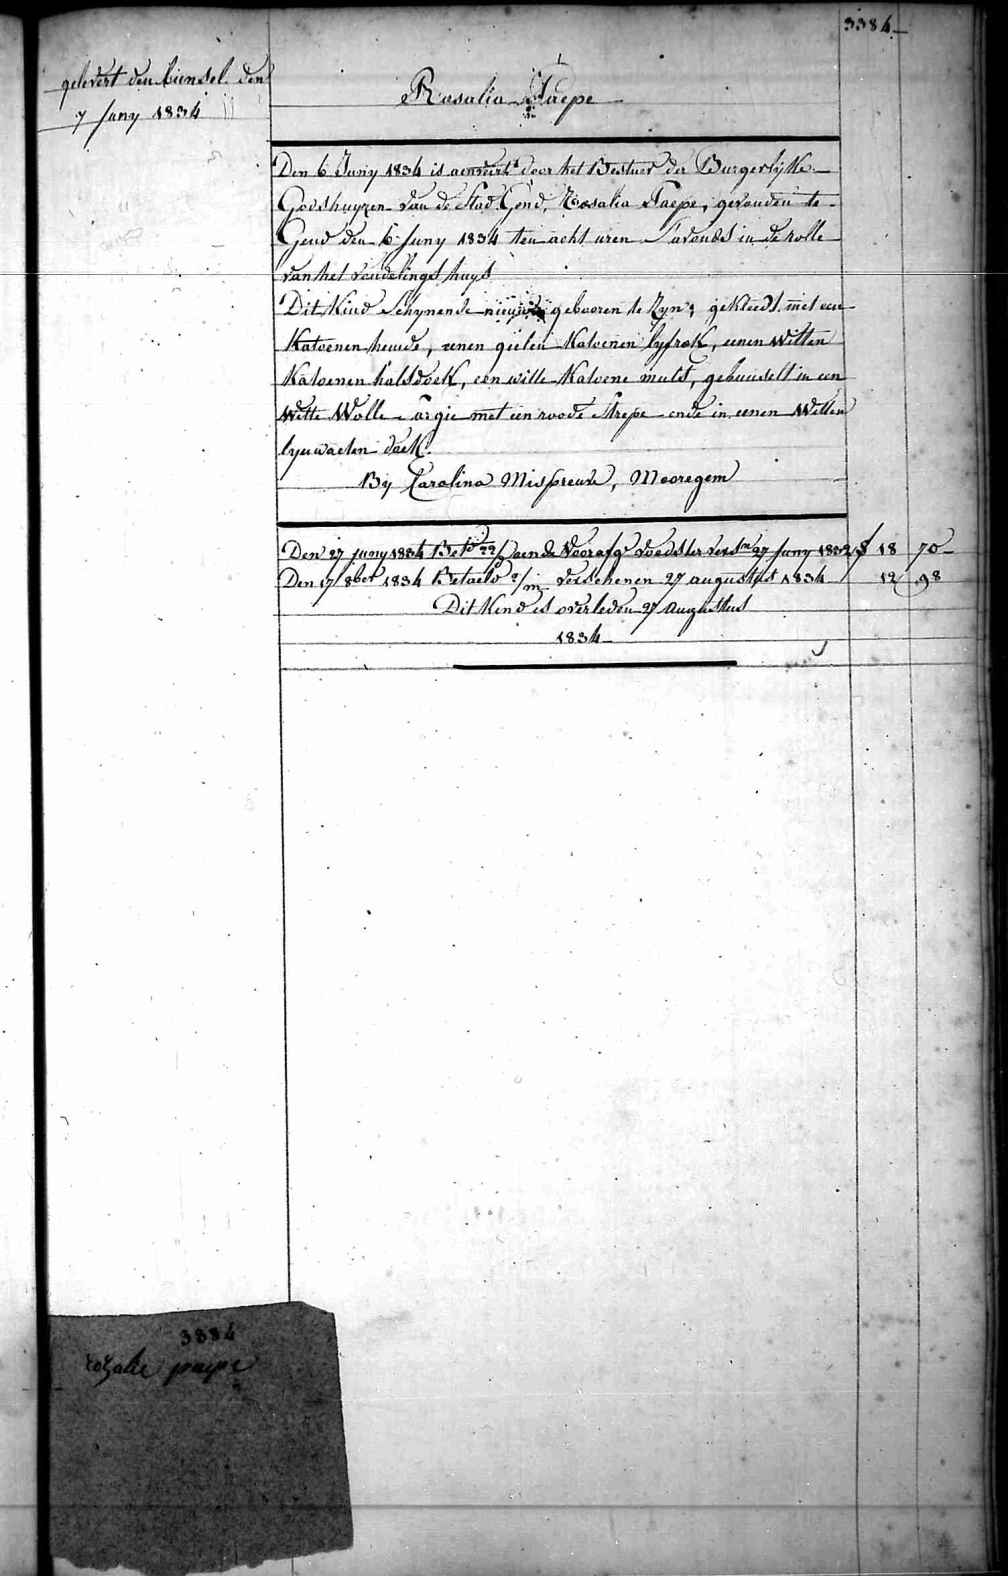 3384
gelevert den bundel den
7 Juny 1834
Rosalia Paepe
Den 6 Juny 1834 is aenveird door het Bestuer der Burgerlyke
Godshuyzen van de Stad Gend, Rosalia Paepe, gevonden te
Gend den 6 Juny 1834 ten acht uren s'avonds in de rolle
van het vondelings huys
Dit Kind Schynende nieuw gebooren te Zyn; gekleedt met een
Katoenen hemde, eenen gielen Katoenen lyfrok, eenen Witten
Katoenen halsdoek, een witte Katoene muts, gebusselt in een
Witte Wolle Sargie met een roode Strepe ende in eenen Witten
lynwaeten doek.
By Carolina Mispreuve, Mooregem
Den 27 Juny 1834 aende Voedster 27 Juny 1834 f 18 70
Den 17 8ber 1834 Betaeld verschenen 27 augustus 1834 12 98
Dit Kind is overleden 27 Augustus
1834
3384
rozalie paepe